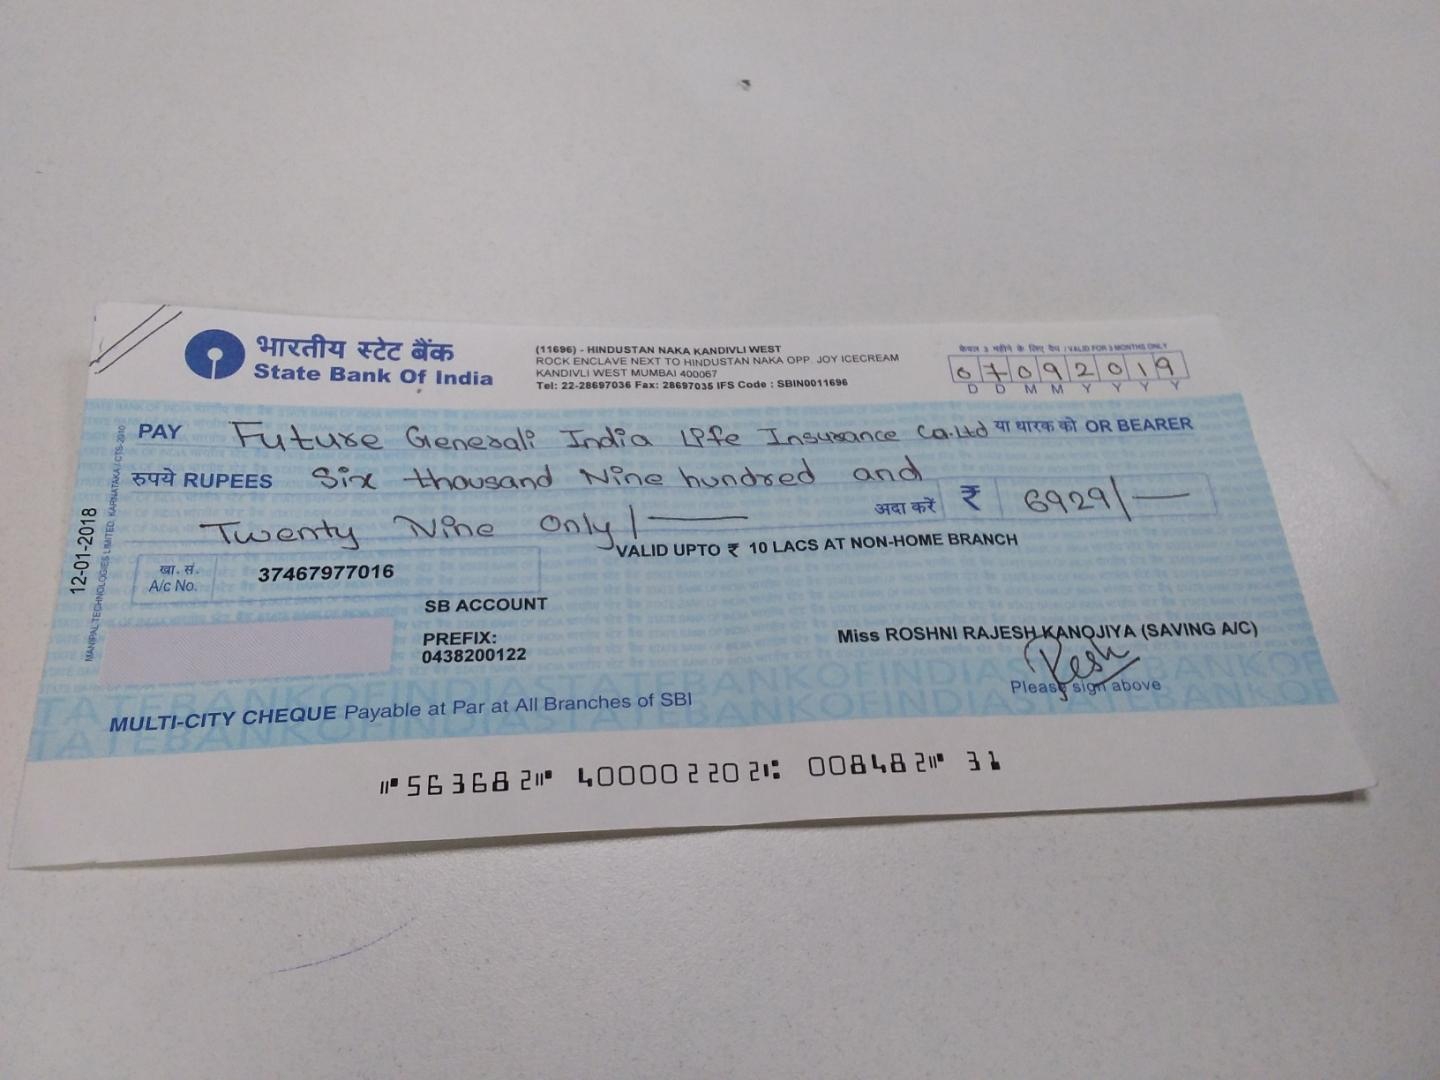 भारतीय स्टेट बैंक
State Bank Of India
(11696) - HINDUSTAN NAKA KANDIVLI WEST
ROCK ENCLAVE NEXT TO HINDUSTAN NAKA OPP. JOY ICECREAM
KANDIVLI WEST MUMBAI 400067
Tel: 22-28697036 Fax: 28697035 IFS Code : SBIN0011696
केवल 3 महीने के लिए वैध / VALID FOR 3 MONTHS ONLY
07092019
D D M M Y Y Y Y
PAY Future Generali India Life Insurance Co.Ltd या धारक को OR BEARER
रुपये RUPEES Six thousand Nine hundred and
Twenty Nine Only/—
अदा करें ₹ 6929/—
VALID UPTO ₹ 10 LACS AT NON-HOME BRANCH
खा. सं.
A/c No. 37467977016
SB ACCOUNT
PREFIX:
0438200122
Miss ROSHNI RAJESH KANOJIYA (SAVING A/C)
Please sign above
MULTI-CITY CHEQUE Payable at Par at All Branches of SBI
⑈563682⑈ 400002202⑆ 008482⑈ 31
12-01-2018
MANIPAL TECHNOLOGIES LIMITED, KARNATAKA / CTS-2010